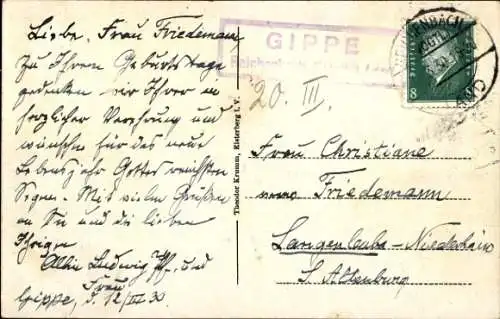 Liebe Frau Friedemann,
Zu Ihrem Geburtstage
gedenken wir Ihrer in
herzlicher Verehrung und
wünschen für das neue
Lebensjahr Gottes reichsten
Segen. Mit vielen Grüßen
an Sie und die lieben
Ihrigen
Albin Ludwig, Pf. und
Frau
Gippe, d. 12/III 30
Theodor Krumm, Elsterberg i. V.
GIPPE
20. III.
REICHENBACH
(VOGTL)
8
Frau Christiane
Friedemann
Langenleuba-Niederhain
S. Altenburg